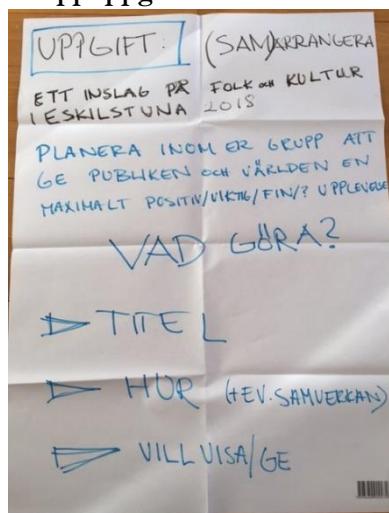 UPPGIFT: (SAM)ARRANGERA
ETT INSLAG PÅ FOLK och KULTUR
I ESKILSTUNA 2018
PLANERA INOM ER GRUPP ATT
GE PUBLIKEN och VÄRLDEN EN
MAXIMALT POSITIV/VIKTIG/FIN/? UPPLEVELSE
VAD GÖRA?
TITEL
HUR (+EV. SAMVERKAN)
VILL VISA/GE